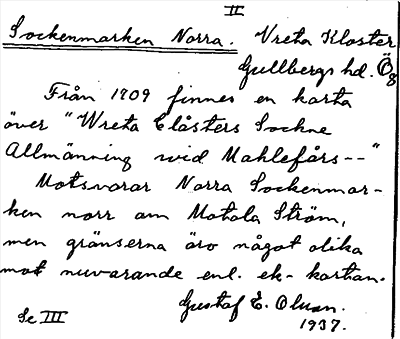 II
Sockenmarken Norra. Vreta Kloster
Gullbergs hd. Ög
Från 1709 finnes en karta
över "Wreta Clåsters Sockne
Allmänning wid Mahlefårs--"
Motsvarar Norra Sockenmar-
ken norr om Motala Ström,
men gränserna äro något olika
mot nuvarande enl. ek-kartan.
Gustaf E. Olsson.
Se III 1937.